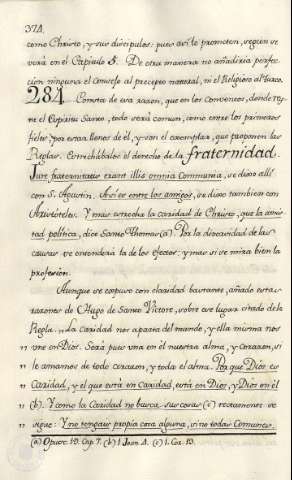 374.
como Christo, y sus discipulos: pues asi lo prometen, segun se
verà en el Capitulo 5. De otra manera no añadiria perfec-
cion ninguna el Consejo al precepto natural, ni el Religioso al
284 Consta de esta razon, que en los Conventos, donde rey-
ne el Espiritu Santo, todo serà comun, como entre los primeros
fieles; por estar llenos de èl, y son el exemplar, que proponen las
Reglas. Corrohòbalo el derecho de la fraternidad.
Jure fraternitatis erant illis omnia Communia, se dixo allì
con S. Agustin. Asi es entre los amigos, se dixo tambien con
Aristòteles. Y mas estrecha la caridad de Christo, que la amis-
tad polìtica, dice Santo Thomas (a). Por la diversidad de las
causas se entenderà la de los efectos; y mas si se mira bien la
profesion.
Aunque se expuso con claridad bastante, añado estas
razones de Hugo de Santo Victore, sobre ese lugar citado de la
Regla. La Caridad nos aparta del mundo, y ella misma nos
" une en Dios. Serà pues una en èl nuestra alma, y Corazon, si
" le amamos de todo corazon, y toda el alma. Por que Dios es
" Caridad, y el que està en Caridad, està en Dios, y Dios en èl
" (b). Y como la Caridad no busca sus cosas (c) rectamente se
" sigue: Y no tengais propia cosa alguna, si no todas Comunes.
(a) Opusc. 19. Cap. 7. (b) 1 Joan 4. (c) 1. Cor. 13.